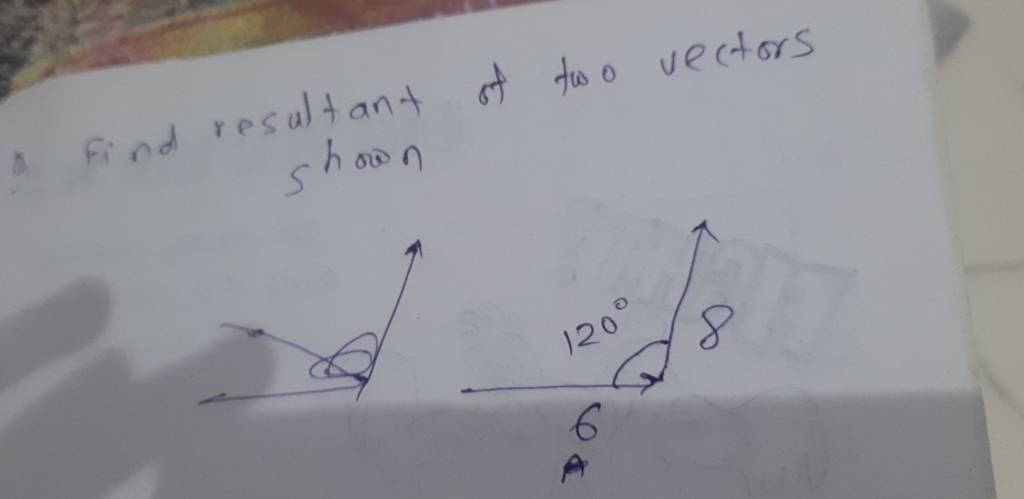 Q Find resultant of two vectors
shown
120°
8
6
A